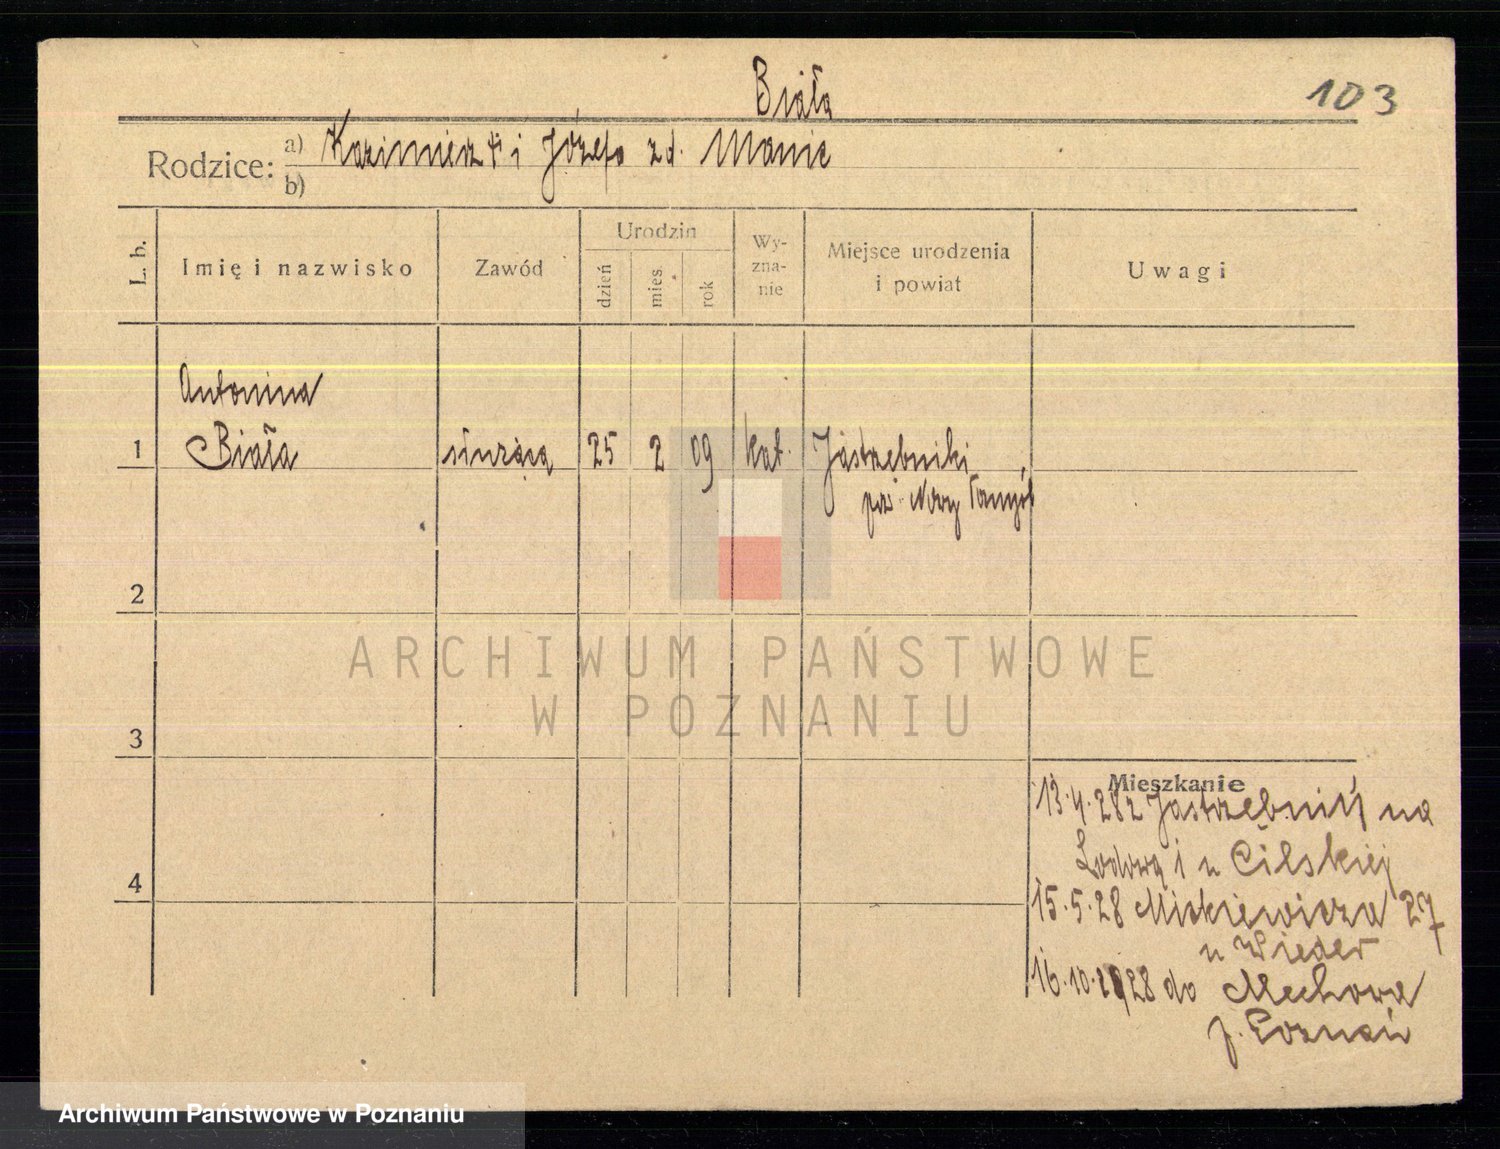 Biała
103
Rodzice: a) Kazimierz † i Józefa zd. Manie
b)
L. b.
Imię i nazwisko
Zawód
Urodzin
dzień
mies.
rok
Wy-
zna-
nie
Miejsce urodzenia
i powiat
Uwagi
Antonina
1 Biała służąca 25 2 09 kat. Jastrzębniki
pow. Nowy Tomyśl
2
ARCHIWUM PAŃSTWOWE
W POZNANIU
3
Mieszkanie
13.4.28 z Jastrzębnik na
Lodową i u Cilskiej
15.5.28 Mickiewicza 27
u Wieder
16.10.28 do Mechowa
p. Poznań
4
Archiwum Państwowe w Poznaniu